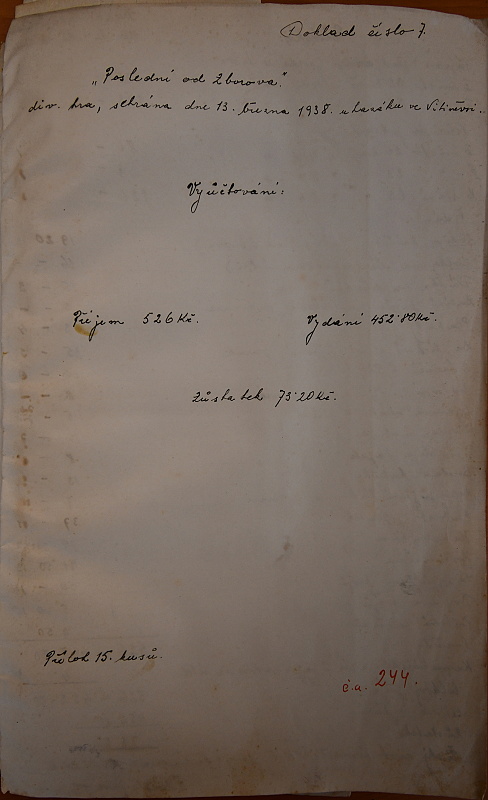 Doklad číslo 7.
„Poslední od Zborova".
div. hra, sehrána dne 13. března 1938. u Lazáku ve
Vyúčtování:
Příjem 526 Kč. Vydání 452·80 Kč.
zůstatek 73·20 Kč.
Příloh 15. kusů.
č.a. 244.